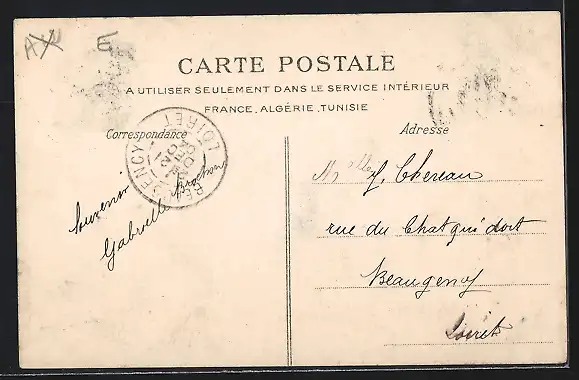 A E
CARTE POSTALE
A UTILISER SEULEMENT DANS LE SERVICE INTÉRIEUR
FRANCE, ALGÉRIE, TUNISIE
Correspondance
Adresse
BEAUGENCY
LOIRET
Souvenir
Gabrielle Brochon
Melle J. Chereau
rue du Chat qui dort
Beaugency
Loiret